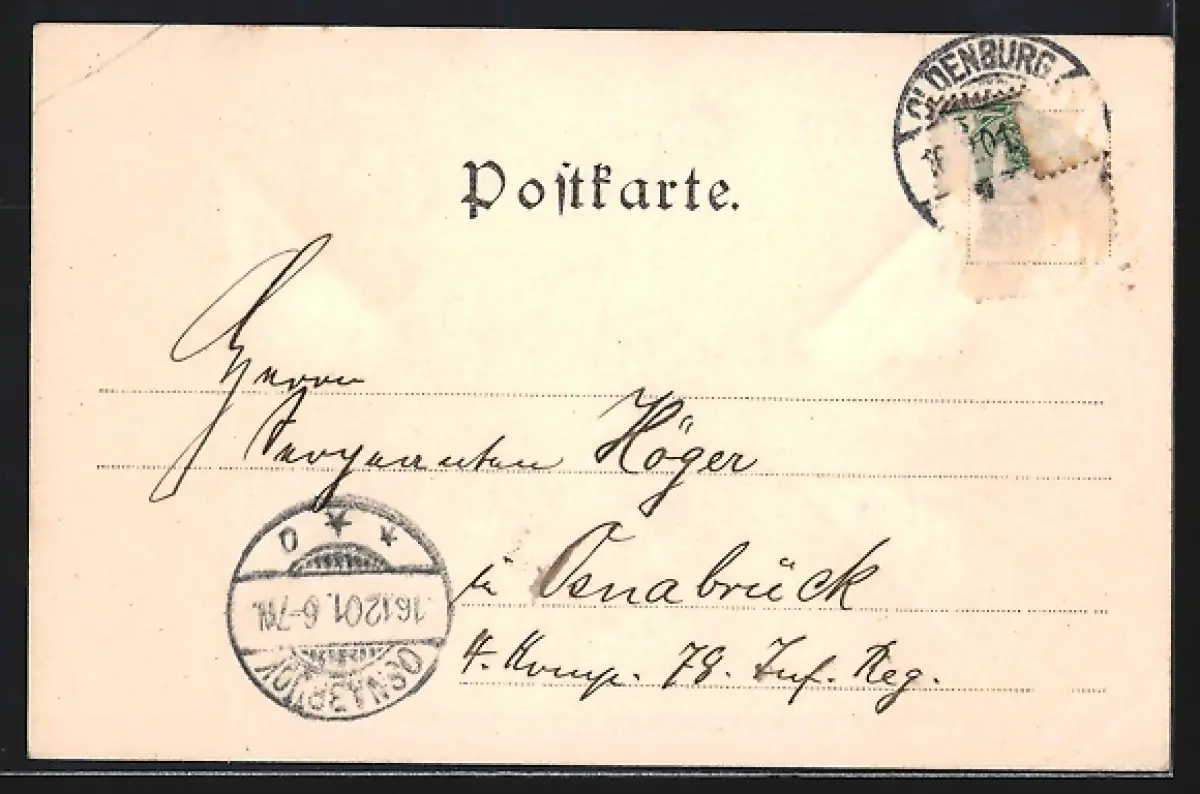 OLDENBURG
Postkarte.
Herrn
Sergeanten Höger
in Osnabrück
4. Komp. 78. Inf. Reg.
16.12.01. 6-7N.